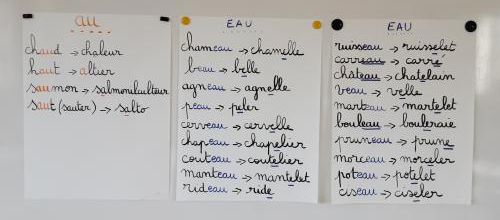 au
chaud → chaleur
haut → altier
saumon → salmoniculteur
saut (sauter) → salto
EAU
chameau → chamelle
beau → belle
agneau → agnelle
peau → peler
cerveau → cervelle
chapeau → chapelier
couteau → coutelier
manteau → mantelet
rideau → ride
EAU
ruisseau → ruisselet
carreau → carré
château → chatelain
veau → velle
marteau → martelet
bouleau → bouleraie
pruneau → prune
morceau → morceler
poteau → potelet
ciseau → ciseler